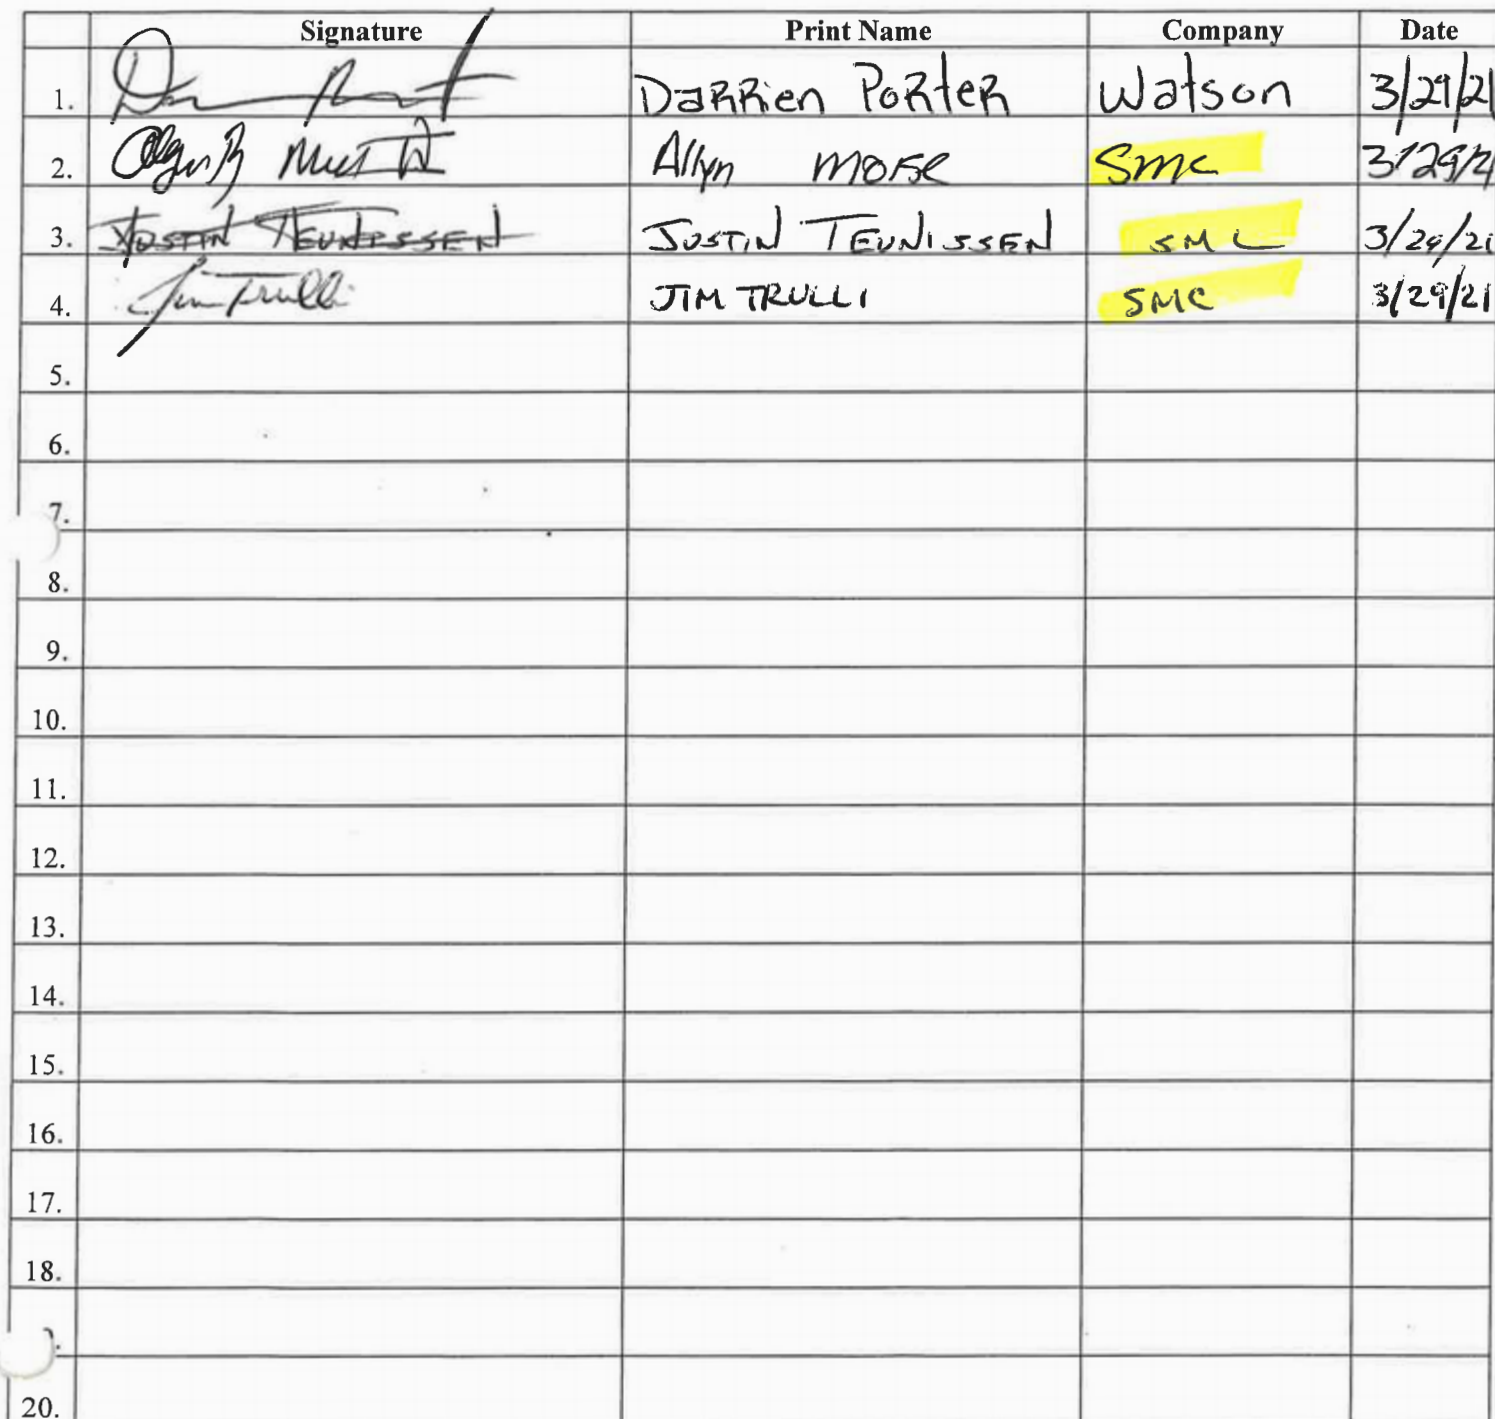 Signature Print Name Company Date
1. Darrien Porter Watson 3/29/21
2. Allyn Morse SMC 3/29/21
3. JUSTIN TEUNISSEN JUSTIN TEUNISSEN SMC 3/29/21
4. Jim Trulli JIM TRULLI SMC 3/29/21
5.
6.
7.
8.
9.
10.
11.
12.
13.
14.
15.
16.
17.
18.
20.